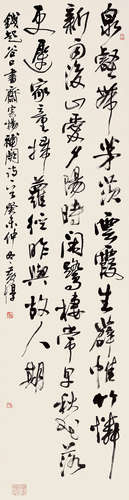 泉壑帶茅茨雲霞生薜帷竹憐
新雨後山愛夕陽時閑鷺棲常早秋花落
更遲家童掃蘿徑昨與故人期
錢起谷口書齋寄楊補闕詩一首癸未仲冬